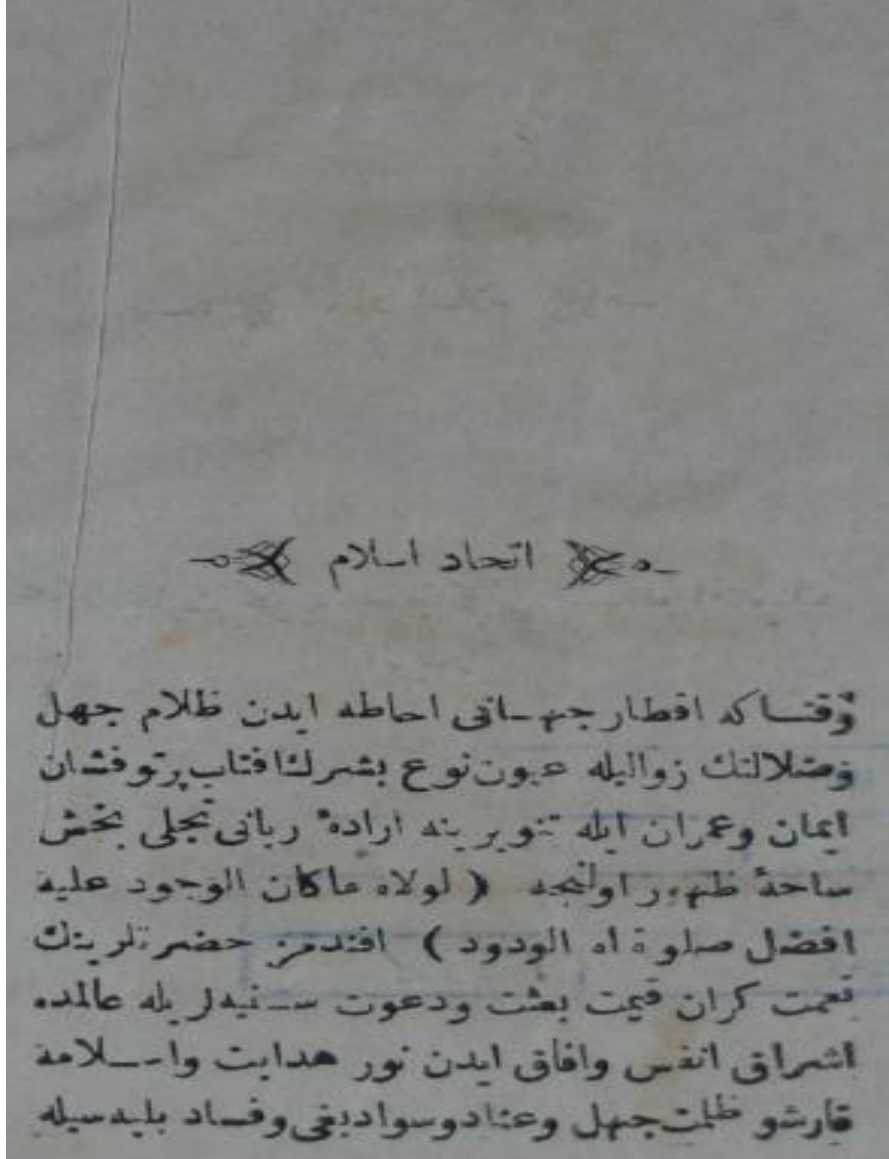 اتحاد اسلام
وقتساكه اقطار جهــانی احاطه ایدن ظلام جهل
وضلالتك زوالیله عیون نوع بشرك افتاب پرتوفشان
ایمان وعمران ایله تنویرینه ارادهٔ ربانی تجلی بخش
ساحهٔ ظهور اولنجه ( لولاه ماكان الوجود علیه
افضل صلوة الله الودود ) افندمز حضرتلرینك
نعمت كران قیمت بعثت ودعوت ســنیه‌لریله عالمده
اشراق انفس وافاق ایدن نور هدایت واســلامه
قارشو ظلمت جهل وعناد وسواد بغی وفساد بلیه‌سیله